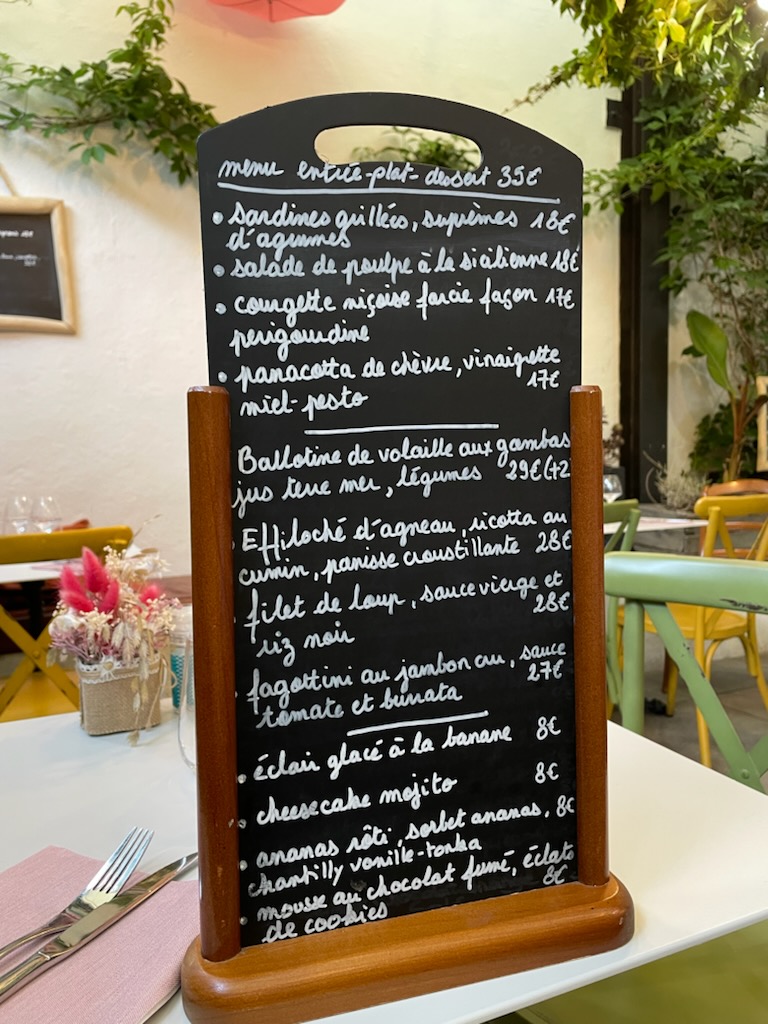 menu entrée-plat-dessert 35€
• sardines grillées, suprêmes 18€
d'agrumes
• salade de poulpe à la sicilienne 18€
• courgette niçoise farcie façon 17€
perigourdine
• panacotta de chèvre, vinaigrette
miel-pesto 17€
Ballotine de volaille aux gambas
jus terre mer, légumes 29€(+2
• Effiloché d'agneau, ricotta au
cumin, panisse croustillante 28€
• filet de loup, sauce vierge et
riz noir 28€
• fagottini au jambon cru, sauce
tomate et burrata 27€
• éclair glacé à la banane 8€
• cheesecake mojito 8€
• ananas rôti, sorbet ananas, 8€
chantilly vanille-tonka
• mousse au chocolat fumé, éclats
de cookies 8€